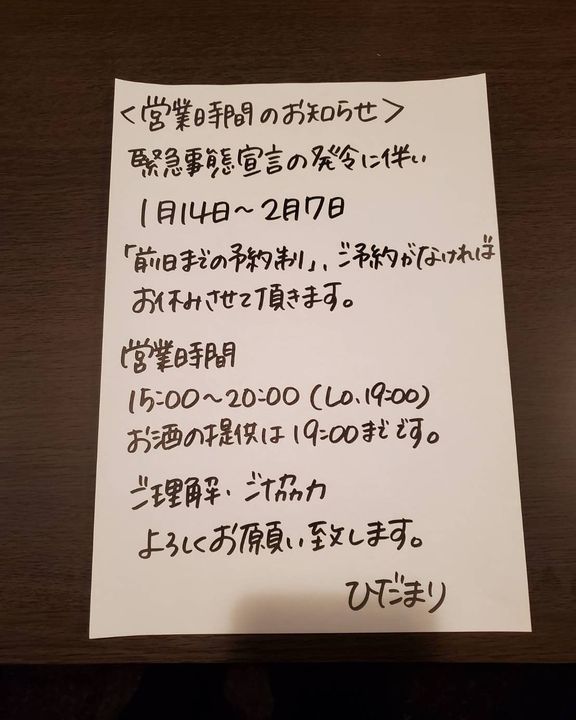 <営業時間のお知らせ>
緊急事態宣言の発令に伴い
1月14日〜2月7日
「前日までの予約制」、ご予約がなければ
お休みさせて頂きます。
営業時間
15:00〜20:00(Lo.19:00)
お酒の提供は19:00までです。
ご理解・ご協力
よろしくお願い致します。
ひだまり